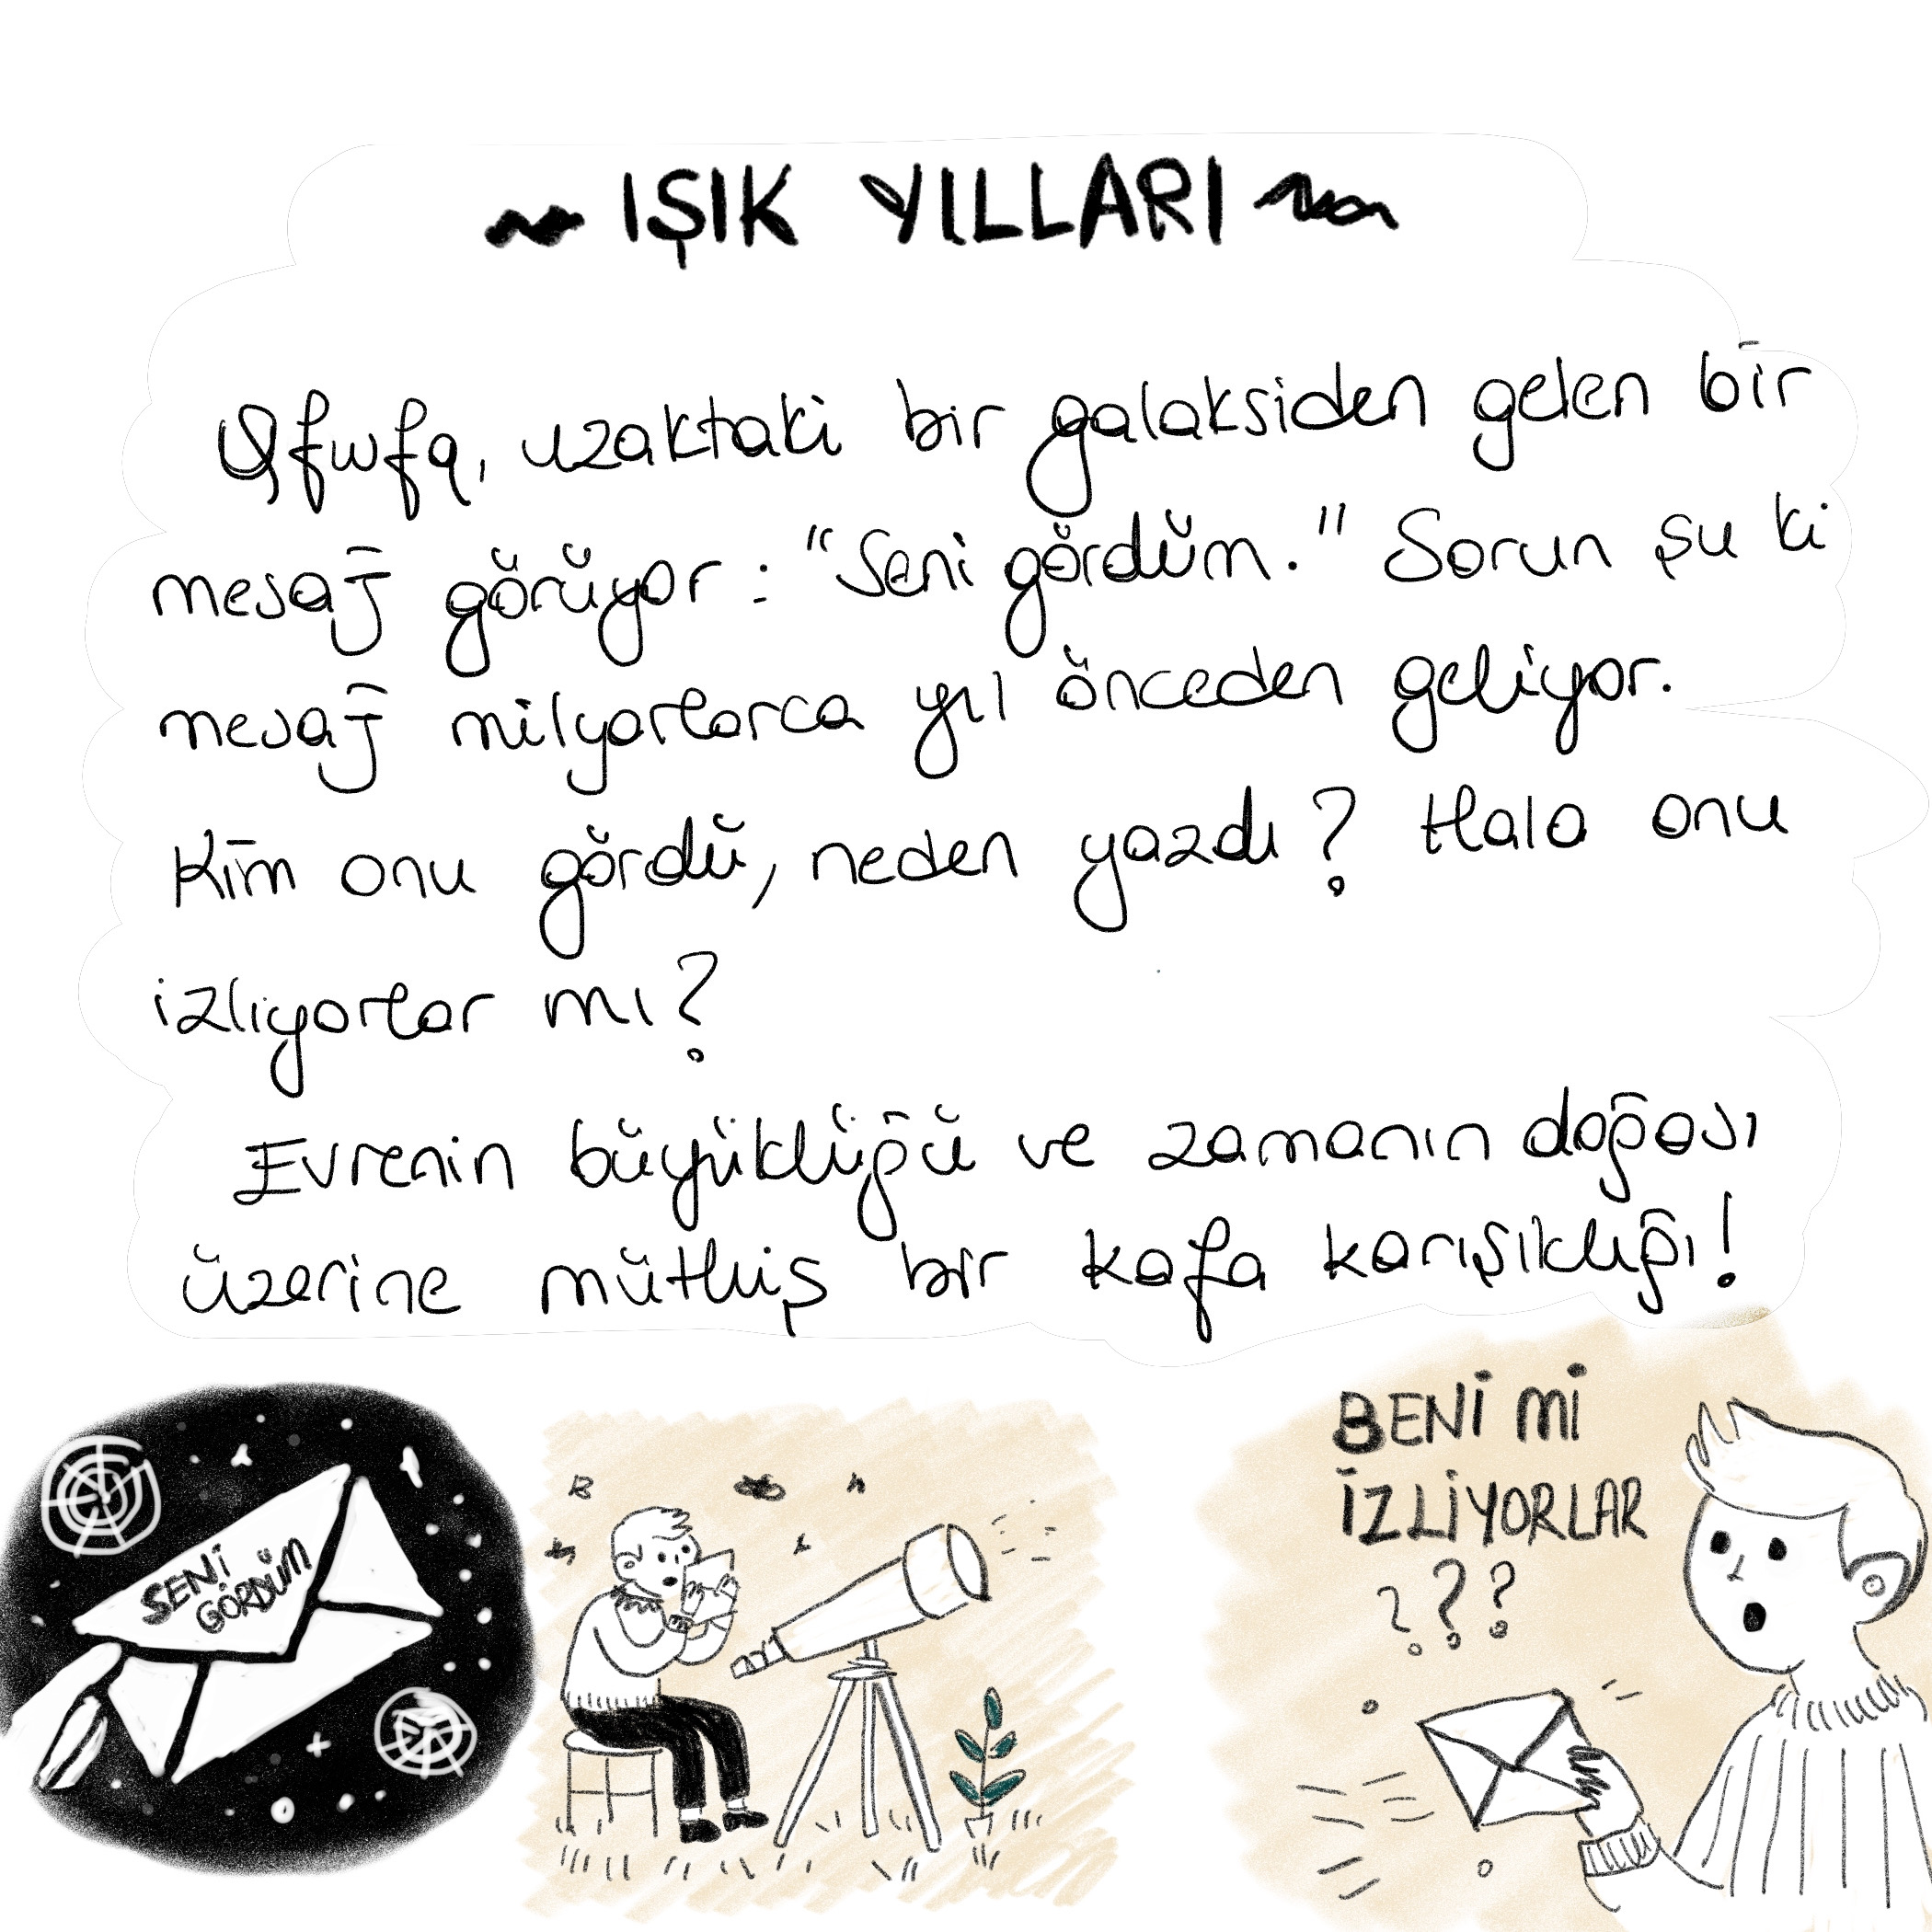 IŞIK YILLARI
Qfwfq, uzaktaki bir galaksiden gelen bir
mesaj görüyor: "Seni gördüm." Sorun şu ki
mesaj milyarlarca yıl önceden geliyor.
Kim onu gördü, neden yazdı? Hala onu
izliyorlar mı?
Evrenin büyüklüğü ve zamanın doğası
üzerine müthiş bir kafa karışıklığı!
SENİ
GÖRDÜM
BENİ Mİ
İZLİYORLAR
???